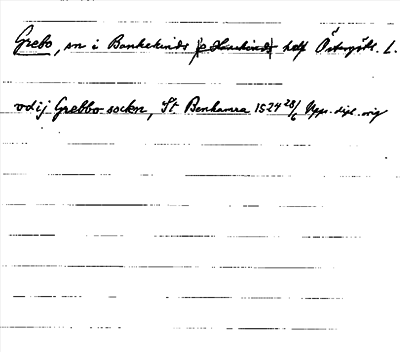 Grebo, sn i Bankekinds hd, Östergötl. L.
vdij Grebbo sockn, St. Benhamra 1524 28/6 Upps. dipl. orig